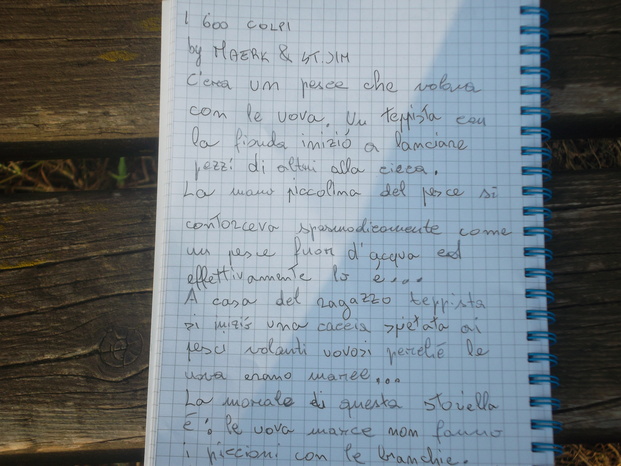 I 600 COLPI
by MAERK & ST. JIM
C'era un pesce che volava
con le uova. Un teppista con
la fionda iniziò a lanciare
pezzi di altri alla cieca.
La mano piccolina del pesce si
contorceva spasmodicamente come
un pesce fuori d'acqua ed
effettivamente lo è...
A casa del ragazzo teppista
si iniziò una caccia spietata ai
pesci volanti uovosi perchè le
uova erano marce...
La morale di questa storiella
è: le uova marce non fanno
i piccioni con le branchie.